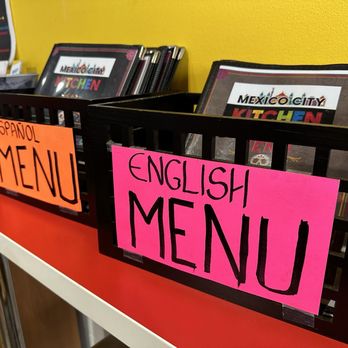 MEXICO CITY
KITCHEN
MEXICO CITY
KITCHEN
SPAÑOL
MENU
ENGLISH
MENU